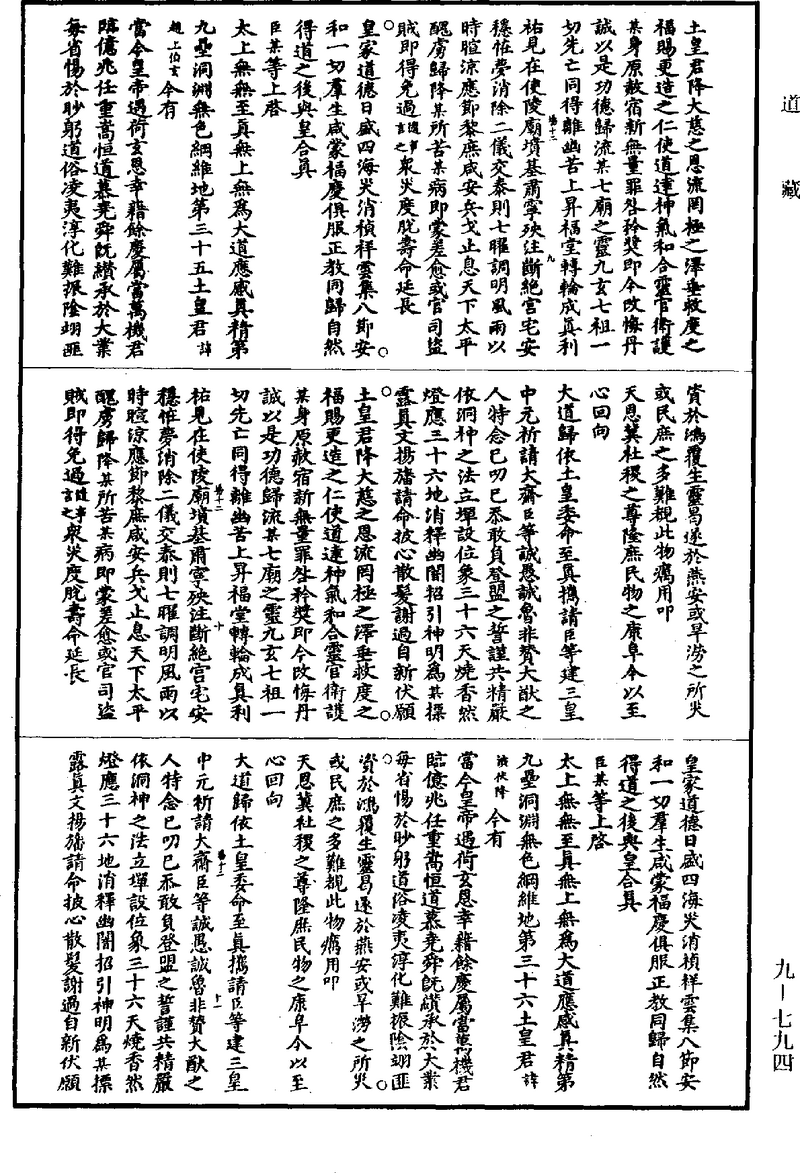 道藏
九—七九四
土皇君降大慈之恩流罔極之澤垂救度之
福賜更造之仁使道達神氣和合靈官衛護
某身原赦宿新無量罪咎矜獎即今改悔丹
誠以是功德歸流某七廟之靈九玄七祖一
切先亡同得離幽苦上昇福堂轉輪成真利
祐見在使陵廟墳基肅寧殃注斷絕宮宅安
穩恠夢消除二儀交泰則七曜調明風雨以
時暄涼應節黎庶咸安兵戈止息天下太平
醜虜歸降某所苦某病即蒙差愈或官司盜
賊即得免過隨事言之衆災度脫壽命延長
皇家道德日盛四海災消禎祥雲集八節安
和一切羣生咸蒙福慶俱服正教同歸自然
得道之後與皇合真
臣某等上啓
太上無無至真無上無為大道應感真精第
九壘洞淵無色綱維地第三十五土皇君諱
趙上伯玄今有
當今皇帝過荷玄恩幸藉餘慶屬當萬機君
臨億兆任重嵩恒道慕堯舜旣纘承於大業
每省惕於眇躬道俗凌夷淳化難振陰翊匪
資於鴻覆生靈曷遂於燕安或旱澇之所災
或民庶之多難覩此物癘用叩
天恩冀社稷之尊隆庶民物之康阜今以至
心回向
大道歸依土皇委命至真攜請臣等建三皇
中元祈請大齋臣等誠愚誠魯非贊大猷之
人特念已叨已忝敢負登盟之誓謹共精嚴
依洞神之法立壇設位象三十六天燒香然
燈應三十六地消釋幽闇招引神明為某摽
露真文揚旛請命披心散髮謝過自新伏願
土皇君降大慈之恩流罔極之澤垂救度之
福賜更造之仁使道達神氣和合靈官衛護
某身原赦宿新無量罪咎矜獎即今改悔丹
誠以是功德歸流某七廟之靈九玄七祖一
切先亡同得離幽苦上昇福堂轉輪成真利
祐見在使陵廟墳基肅寧殃注斷絕宮宅安
穩恠夢消除二儀交泰則七曜調明風雨以
時暄涼應節黎庶咸安兵戈止息天下太平
醜虜歸降某所苦某病即蒙差愈或官司盜
賊即得免過隨事言之衆災度脫壽命延長
皇家道德日盛四海災消禎祥雲集八節安
和一切羣生咸蒙福慶俱服正教同歸自然
得道之後與皇合真
臣某等上啓
太上無無至真無上無為大道應感真精第
九壘洞淵無色綱維地第三十六土皇君諱
伏降今有
當今皇帝過荷玄恩幸藉餘慶屬當萬機君
臨億兆任重嵩恒道慕堯舜旣纘承於大業
每省惕於眇躬道俗凌夷淳化難振陰翊匪
資於鴻覆生靈曷遂於燕安或旱澇之所災
或民庶之多難覩此物癘用叩
天恩冀社稷之尊隆庶民物之康阜今以至
心回向
大道歸依土皇委命至真攜請臣等建三皇
中元祈請大齋臣等誠愚誠魯非贊大猷之
人特念已叨已忝敢負登盟之誓謹共精嚴
依洞神之法立壇設位象三十六天燒香然
燈應三十六地消釋幽闇招引神明為某摽
露真文揚旛請命披心散髮謝過自新伏願